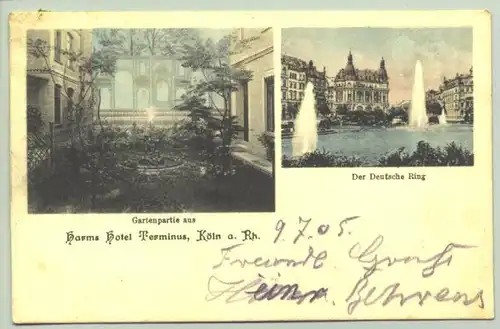 Der Deutsche Ring
Gartenpartie aus
Harms Hotel Terminus, Köln a. Rh.
9 7.05.
Freundl. Gruß
Behrens